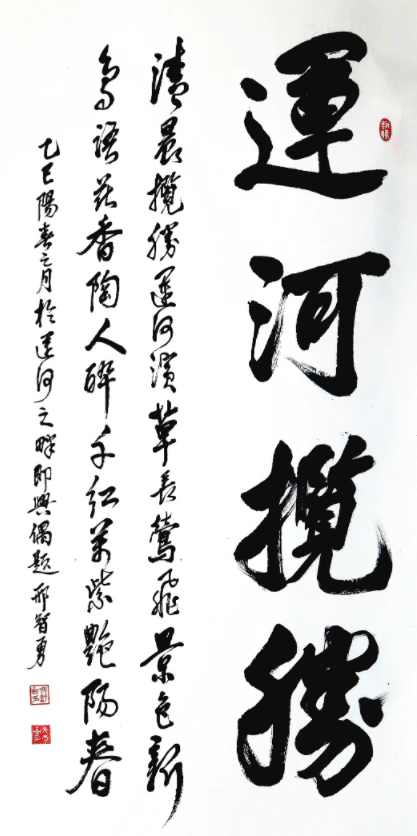 運河攬勝
清晨攬勝運河濱草長鶯飛景色新
鳥語花香陶人醉千紅萬紫艷陽春
乙巳陽春之月於運河之畔即興偶題邢智勇